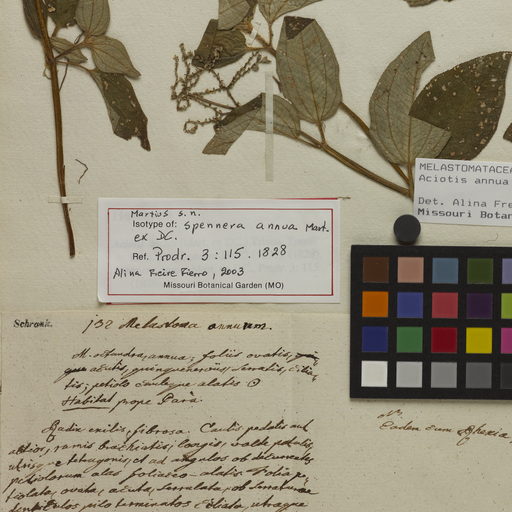 MELASTOMATACEA
Aciotis annua
Det. Alina Fre
Missouri Botan
Martius s.n.
Isotype of: Spennera annua Mart.
ex DC.
Ref. Prodr. 3:115. 1828
Alina Freire Fierro, 2003
Missouri Botanical Garden (MO)
Schrank.
132 Melastoma annuum.
M. octandra, annua; foliis ovatis,
acutis, quinquenerviis, serratis, cilia-
tis; petiolo cauleque alatis ☉
Habitat prope Parà.
Radix exilis, fibrosa. Caulis pedalis aut
altior, ramis brachiatis, longis, valde patulis,
utrisque tetragonis, et ad angulos ob decurrentes
petiolorum alas foliaceo-alatis. Folia pe-
tiolata, ovata, acuta, serrulata, ob serraturae
denticulos pilo terminatos ciliata, utraque
Eadem cum Rhexia,